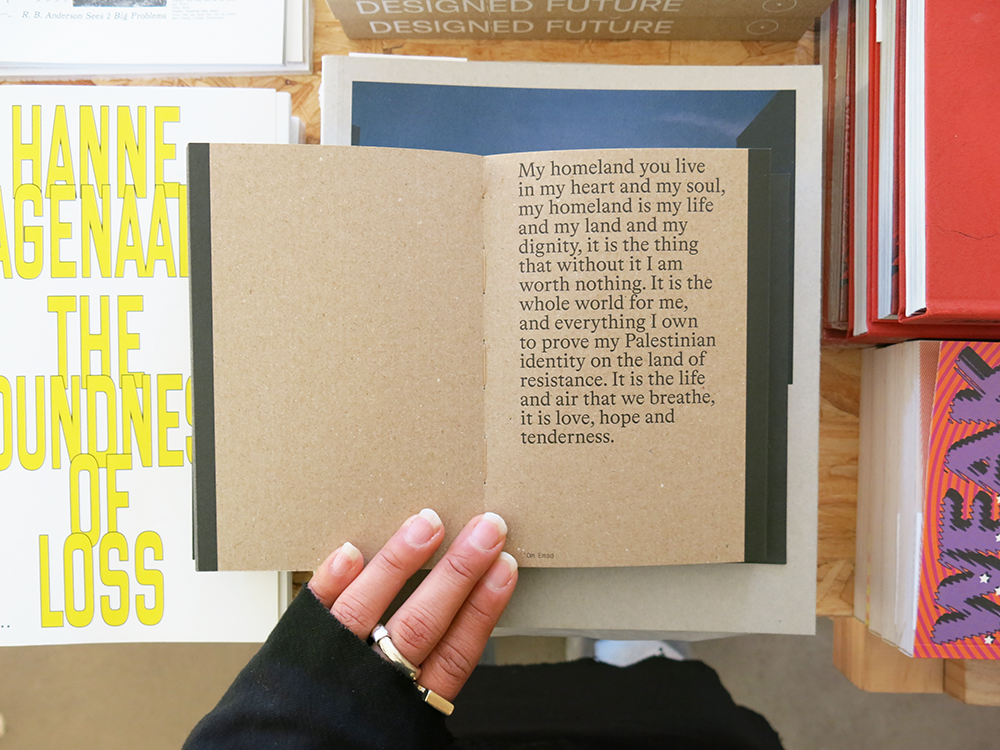 R. B. Anderson Sees 2 Big Problem
DESIGNED FUTURE
DESIGNED FUTURE
HANNE
AGENAA
THE
OUNDNES
OF
LOSS
My homeland you live
in my heart and my soul,
my homeland is my life
and my land and my
dignity, it is the thing
that without it I am
worth nothing. It is the
whole world for me,
and everything I own
to prove my Palestinian
identity on the land of
resistance. It is the life
and air that we breathe,
it is love, hope and
tenderness.
Om Emad
WEAR
WEAR